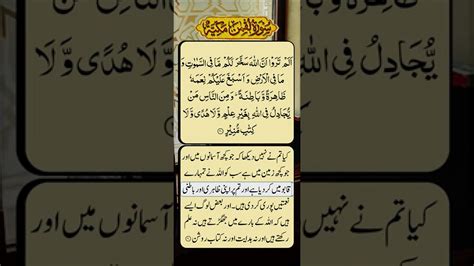 سورۃ لقمٰن مکیۃ
اَلَمْ تَرَوْا اَنَّ اللّٰهَ سَخَّرَ لَكُمْ مَّا فِی السَّمٰوٰتِ وَ
مَا فِی الْاَرْضِ وَ اَسْبَغَ عَلَیْكُمْ نِعَمَهٗ
ظَاهِرَةً وَّ بَاطِنَةًؕ وَ مِنَ النَّاسِ مَنْ
یُّجَادِلُ فِی اللّٰهِ بِغَیْرِ عِلْمٍ وَّ لَا هُدًى وَّ لَا
كِتٰبٍ مُّنِیْرٍ
کیا تم نے نہیں دیکھا کہ جو کچھ آسمانوں میں اور
جو کچھ زمین میں ہے سب کو اللہ نے تمہارے
قابو میں کر دیا ہے اور تم پر اپنی ظاہری اور باطنی
نعمتیں پوری کر دی ہیں۔ اور بعض لوگ ایسے
ہیں کہ اللہ کے بارے میں جھگڑتے ہیں نہ علم
رکھتے ہیں اور نہ ہدایت اور نہ کتاب روشن